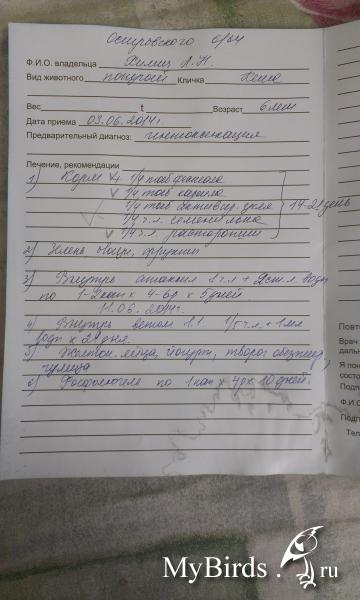 Островского 6/64
Ф.И.О. владельца Химич Л.Н.
Вид животного попугай Кличка Кеша
Вес t Возраст 6 лет
Дата приема 03.06.2014г
Предварительный диагноз: интоксикация
Лечение, рекомендации
1) Корм + 1/4 таб фестала
1/4 таб карсила
1/4 таб активир. угля
1/4 ч.л. семени льна
1/4 ч.л. расторопши
14-21 день
2) Зелень овощи, фрукты
3) Внутрь атоксил 1 ч.л + 2 ст.л. воды
по 1-2 кап х 4-6р х 5 дней
11.06.2014г.
4) Внутрь ветом 1.1. 1/5 ч.л. + 1 мл
воды х 21 дня.
5) Желток яйца, йогурт, творог обезжир,
6) по 1 кап х 4р х 10 дней.
Повто
Врач
даль
Я по
состо
Подп
Ф.И.О
Подп
Тел
MyBirds.ru